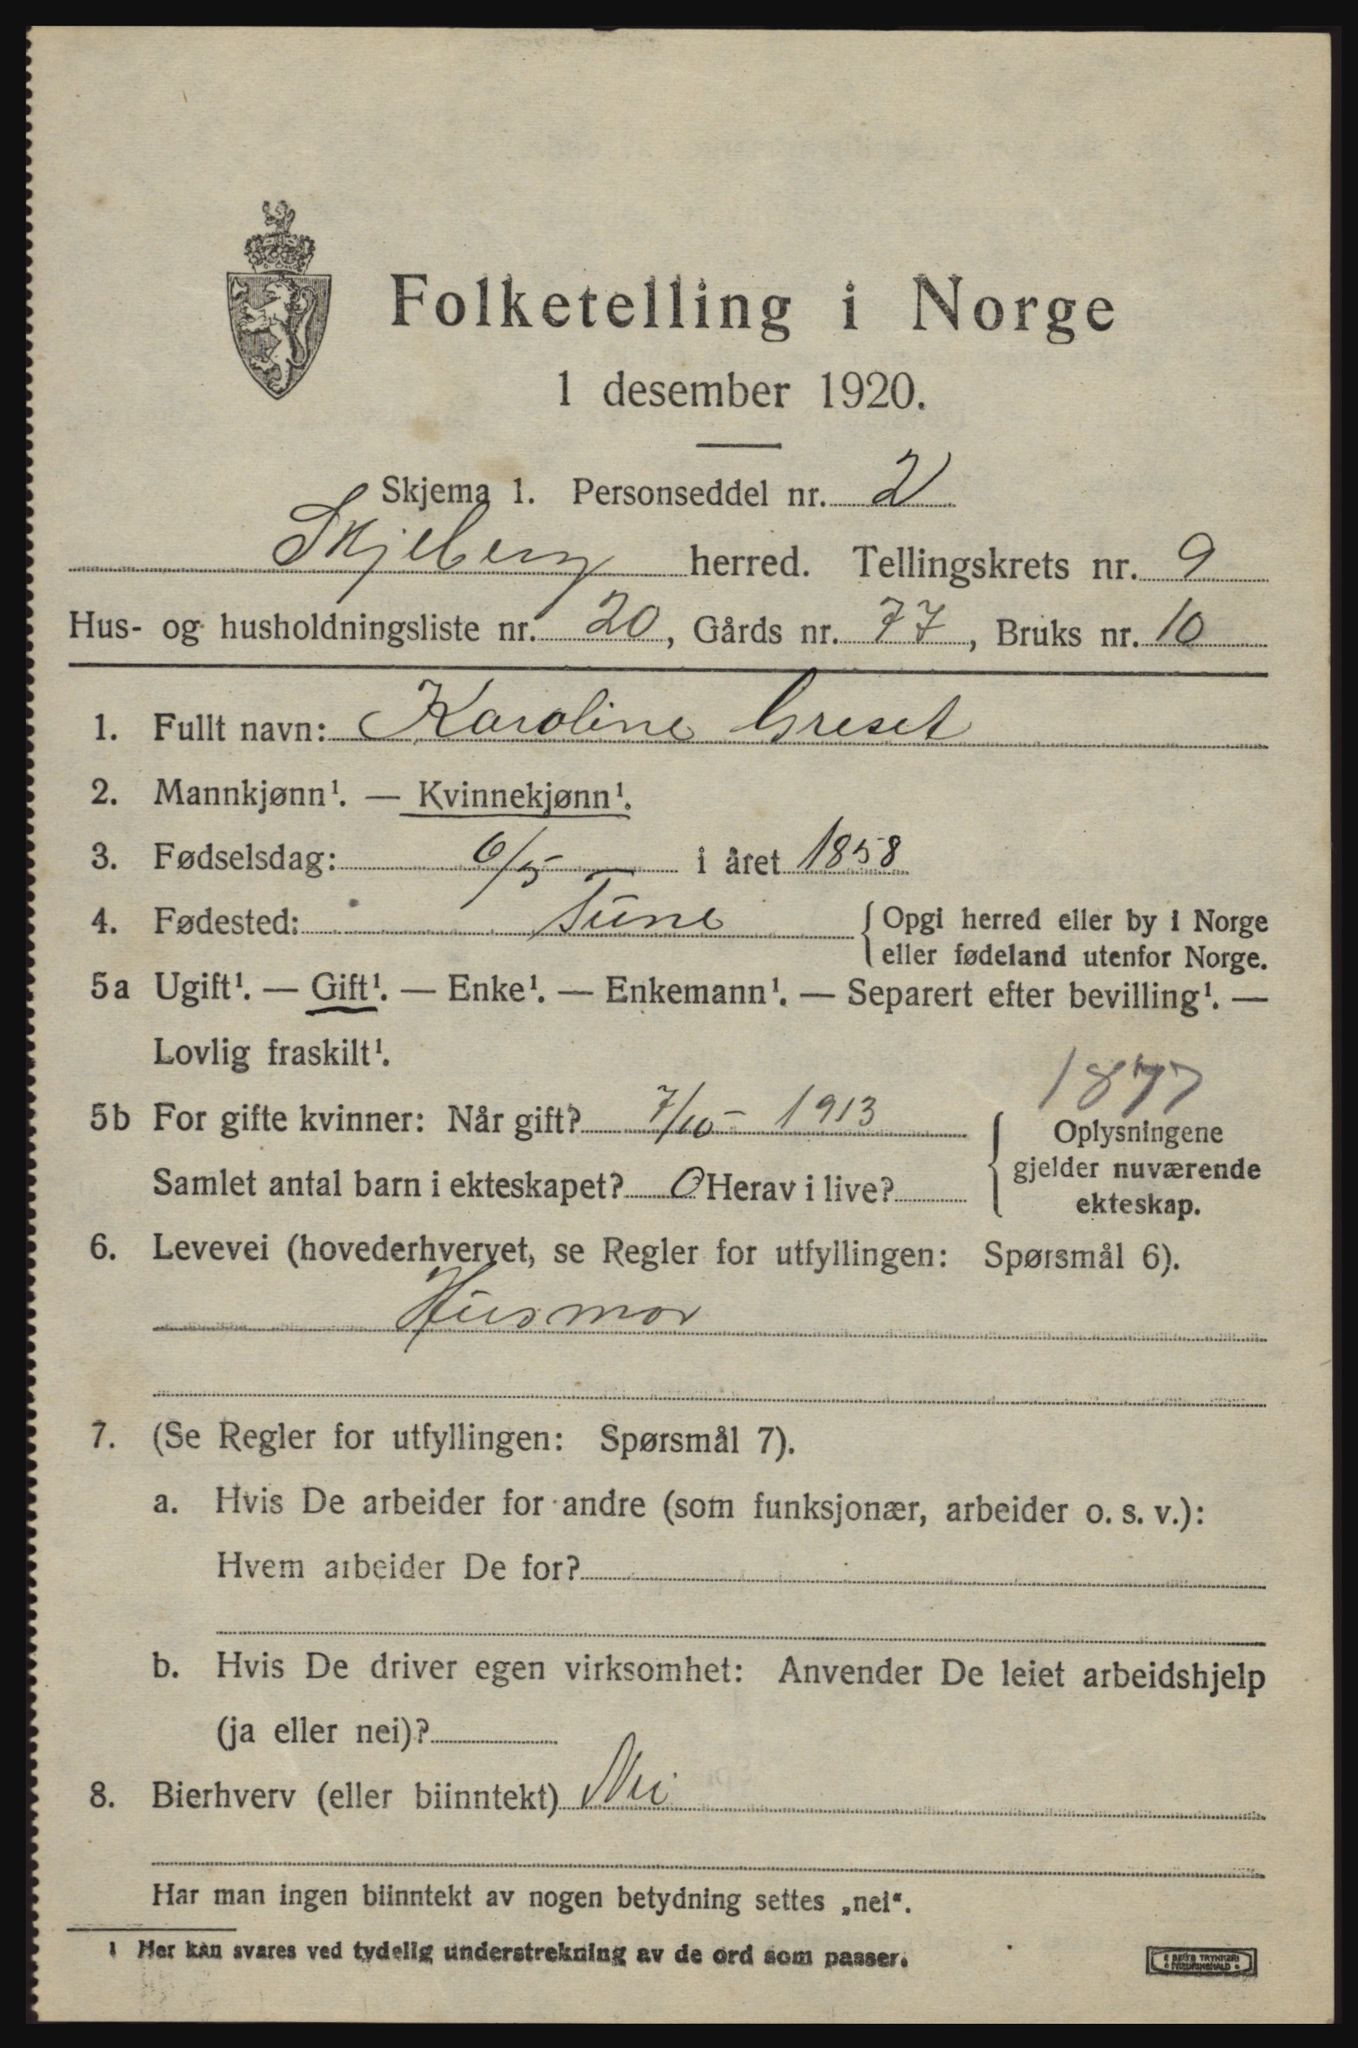 Folketelling i Norge
1 desember 1920.
Skjema 1. Personseddel nr. 2
Skjeberg herred. Tellingskrets nr. 9
Hus- og husholdningsliste nr. 20, Gårds nr. 77, Bruks nr. 10
1. Fullt navn: Karoline Greset
2. Mannkjønn¹. — Kvinnekjønn¹.
3. Fødselsdag: 6/5 — i året 1858
4. Fødested: Tune { Opgi herred eller by i Norge
eller fødeland utenfor Norge.
5a Ugift¹. — Gift¹. — Enke¹. — Enkemann¹. — Separert efter bevilling¹. —
Lovlig fraskilt¹.
1877
5b For gifte kvinner: Når gift? 7/10 - 1913
Samlet antal barn i ekteskapet? 0 Herav i live?
Oplysningene
gjelder nuværende
ekteskap.
6. Levevei (hovederhvervet, se Regler for utfyllingen: Spørsmål 6).
Husmor
7. (Se Regler for utfyllingen: Spørsmål 7).
a. Hvis De arbeider for andre (som funksjonær, arbeider o. s. v.):
Hvem arbeider De for?
b. Hvis De driver egen virksomhet: Anvender De leiet arbeidshjelp
(ja eller nei)?
8. Bierhverv (eller biinntekt) Nei
Har man ingen biinntekt av nogen betydning settes „nei".
1 Her kan svares ved tydelig understrekning av de ord som passer.